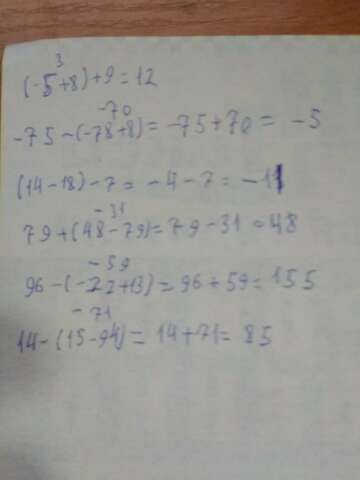 3
(-5+8)+9=12
-70
-75-(-78+8)=-75+70=-5
(14-18)-7=-4-7=-11
-31
79+(48-79)=79-31=48
-59
96-(-72+13)=96+59=155
-71
14-(15-94)=14+71=85